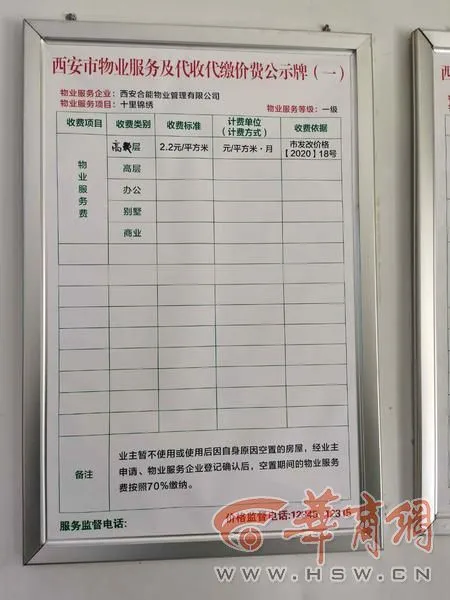 西安市物业服务及代收代缴价费公示牌（一）
物业服务企业：西安合能物业管理有限公司
物业服务项目：十里锦绣 物业服务等级：一级
收费项目 收费类别 收费标准 计费单位（计费方式） 收费依据
物业服务费
高层 2.2元/平方米 元/平方米·月 市发改价格【2020】18号
高层
办公
别墅
商业
备注
业主暂不使用或使用后因自身原因空置的房屋，经业主
申请、物业服务企业登记确认后，空置期间的物业服务
费按照70%缴纳。
服务监督电话： 价格监督电话:12345 12315
华商网
WWW.HSW.CN